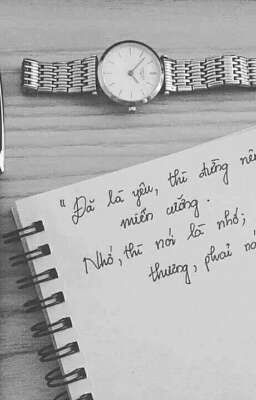 " Đã là yêu, thì đừng nên
miễn cưỡng.
Nhớ, thì nói là nhớ;
thương, phải nó